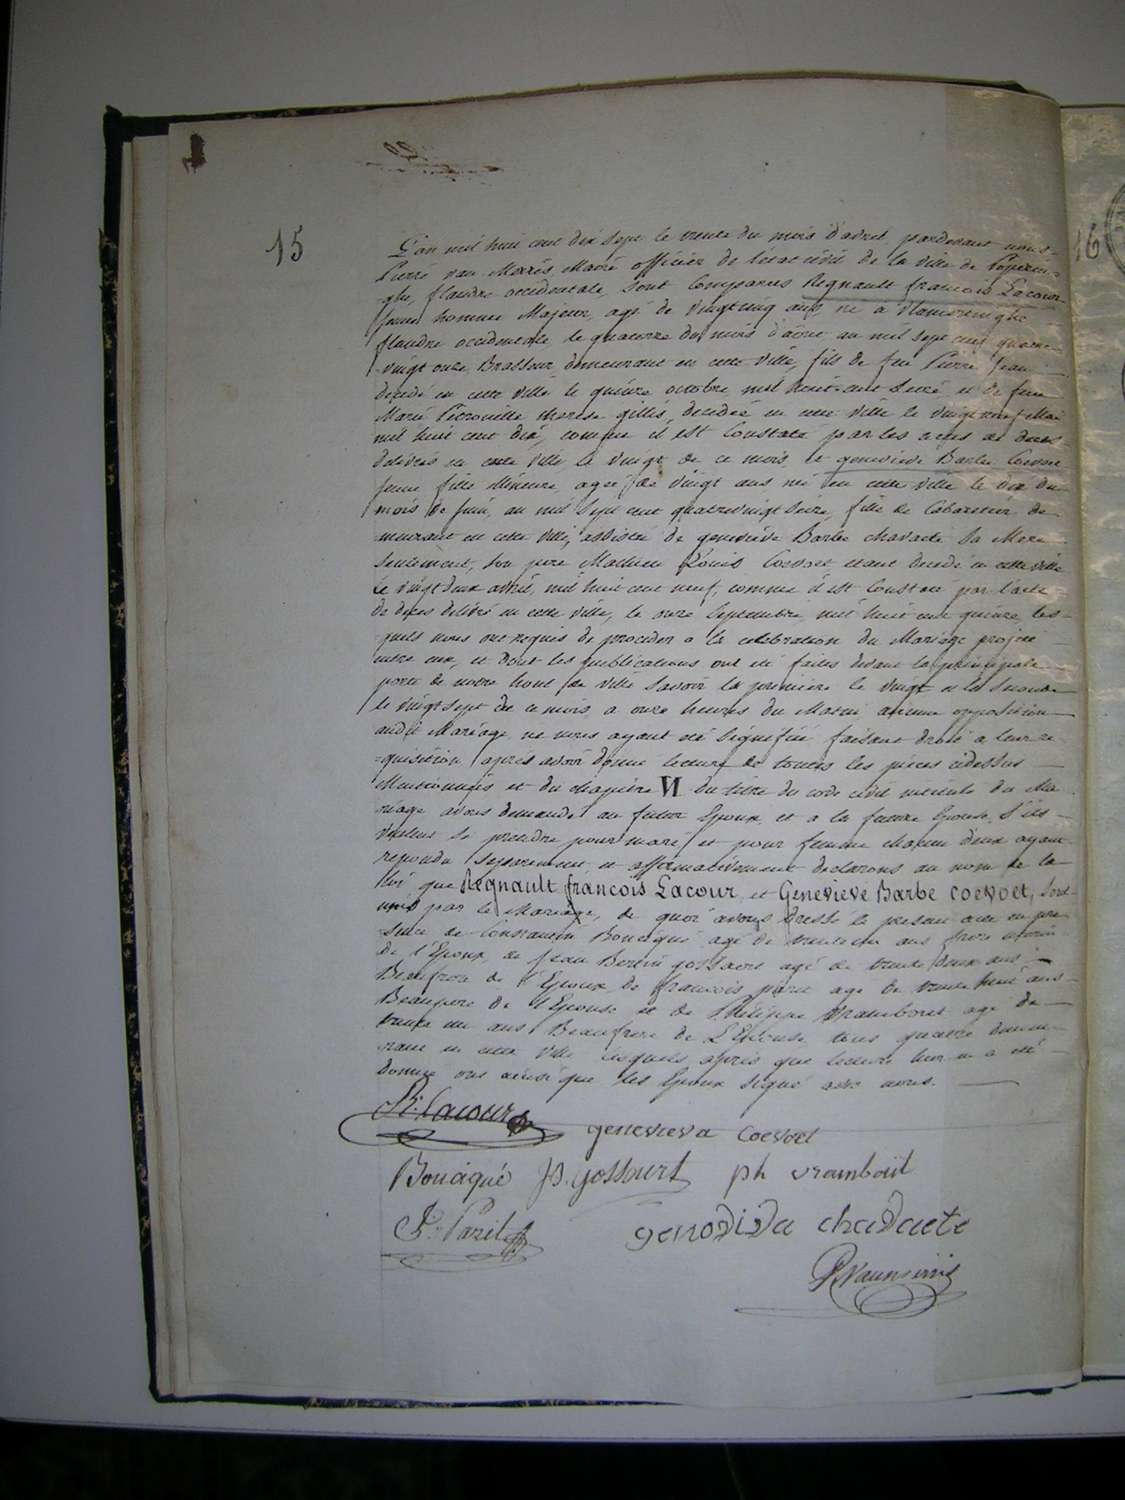 15
16
L'an mil huit cent dix sept le trente du mois d'avril, pardevant nous
Pierre van Mairis Maire officier de l'etat civil de la ville de Poperin-
ghe, flandre occidentale, sont Comparus Regnault francois Lacour
jeune homme Majeur, agé de vingtcinq ans, né à vlamertinghe
flandre occidentale, le quatorze du mois d'avril an mil sept cent quatre
vingt onze, Brasseur demeurant en cette ville, fils de feu Pierre Jean
decedé en cette ville le quinze octobre mil huit cent treize et de feue
Marie Petronille therese gillis, decedée en cette ville le vingt neuf Mai
mil huit cent dix, comme il est Constaté par les actes de deces
delivrés en cette ville le vingt de ce mois, et genevieve Barbe Coevoet
jeune fille Mineure, agée de vingt ans née en cette ville le dix du
mois de juin, an mil sept cent quatrevingt seize, fille de Cabaretier de-
meurant en cette ville, assistée de genevieve Barbe chavaete sa Mere
seulement, son pere Mathieu Louis Coevoet etant decedé en cette ville
le vingt deux avril, mil huit cent neuf, comme il est Constaté par l'acte
de deces delivré en cette ville, le onze Septembre mil huit cent quinze, les-
quels nous ont requis de proceder a la celebration du Mariage projeté
entre eux, et dont les publications ont été faites devant la principale
porte de notre hotel de ville Savoir la premiere le vingt et la seconde
le vingt sept de ce mois, a onze heures du Matin aucune opposition
audit Mariage ne nous ayant été signifiée faisant droit a leur re-
quisition, après avoir donné lecture de toutes les pièces cidessus
Mentionnées et du chapitre VI du titre du code civil intitulé du Ma
riage avons demandé au futur Epoux, et a la future Epouse, s'ils
veulent se prendre pour mari et pour femme chacun d'eux ayant
repondu separement et affirmativement declarons au nom de la
loi que Regnault francois Lacour, et Genevieve Barbe Coevoet, sont
unis par le Mariage, de quoi avons dressé le present acte en pre
sence de Constantin Bouciqué agé de trente ans frere uterin
de l'Epoux, de Jean gossaert agé de trente deux ans
Beaufrere de l'Epoux de francois parit agé de trente huit ans
Beaupere de l'Epouse et de Philippe Vrambout agé de
trente un ans Beaufrere de L'Epouse tous quatre demeu
rant en cette ville lesquels après que lecture leur en a été
donnée ont ainsi que les Epoux signé avec nous.
R. Lacour
genevieva Coevoet
Bouciqué J.B. gossaert ph vramboüt
F. Parit
genoviva chavaete